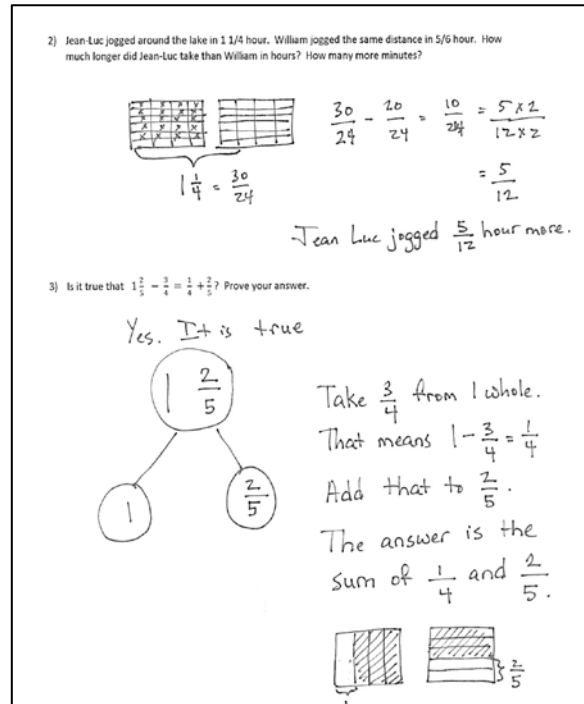 2) Jean-Luc jogged around the lake in 1 1/4 hour. William jogged the same distance in 5/6 hour. How
much longer did Jean-Luc take than William in hours? How many more minutes?
30/24 - 20/24 = 10/24 = 5×2/12×2
= 5/12
1 1/4 = 30/24
Jean Luc jogged 5/12 hour more.
3) Is it true that 1 2/5 - 3/4 = 1/4 + 2/5? Prove your answer.
Yes. It is true
1 2/5
1
2/5
Take 3/4 from 1 whole.
That means 1 - 3/4 = 1/4
Add that to 2/5.
The answer is the
sum of 1/4 and 2/5.
2/5